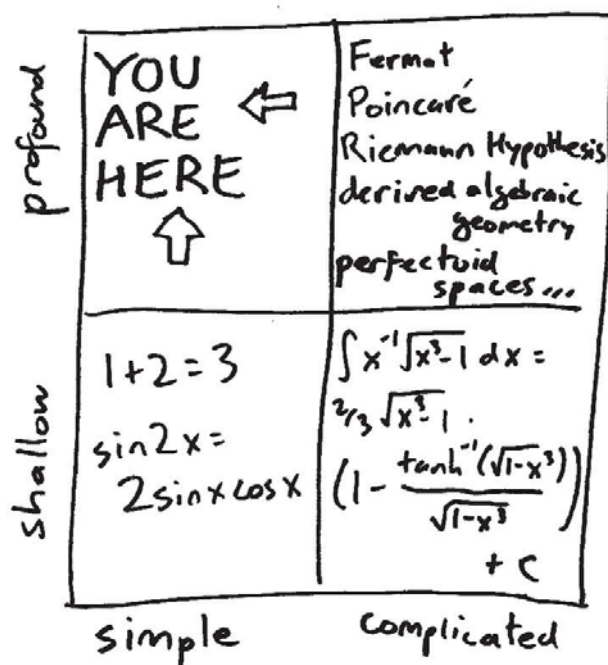 profound
YOU
ARE
HERE
Fermat
Poincaré
Riemann Hypothesis
derived algebraic
geometry
perfectoid
spaces...
shallow
1+2=3
sin2x=
2sinxcosx
∫x⁻¹√(x³-1) dx =
2/3 √(x³-1) .
(1 - tanh⁻¹(√(1-x³))/√(1-x³))
+ C
simple
complicated